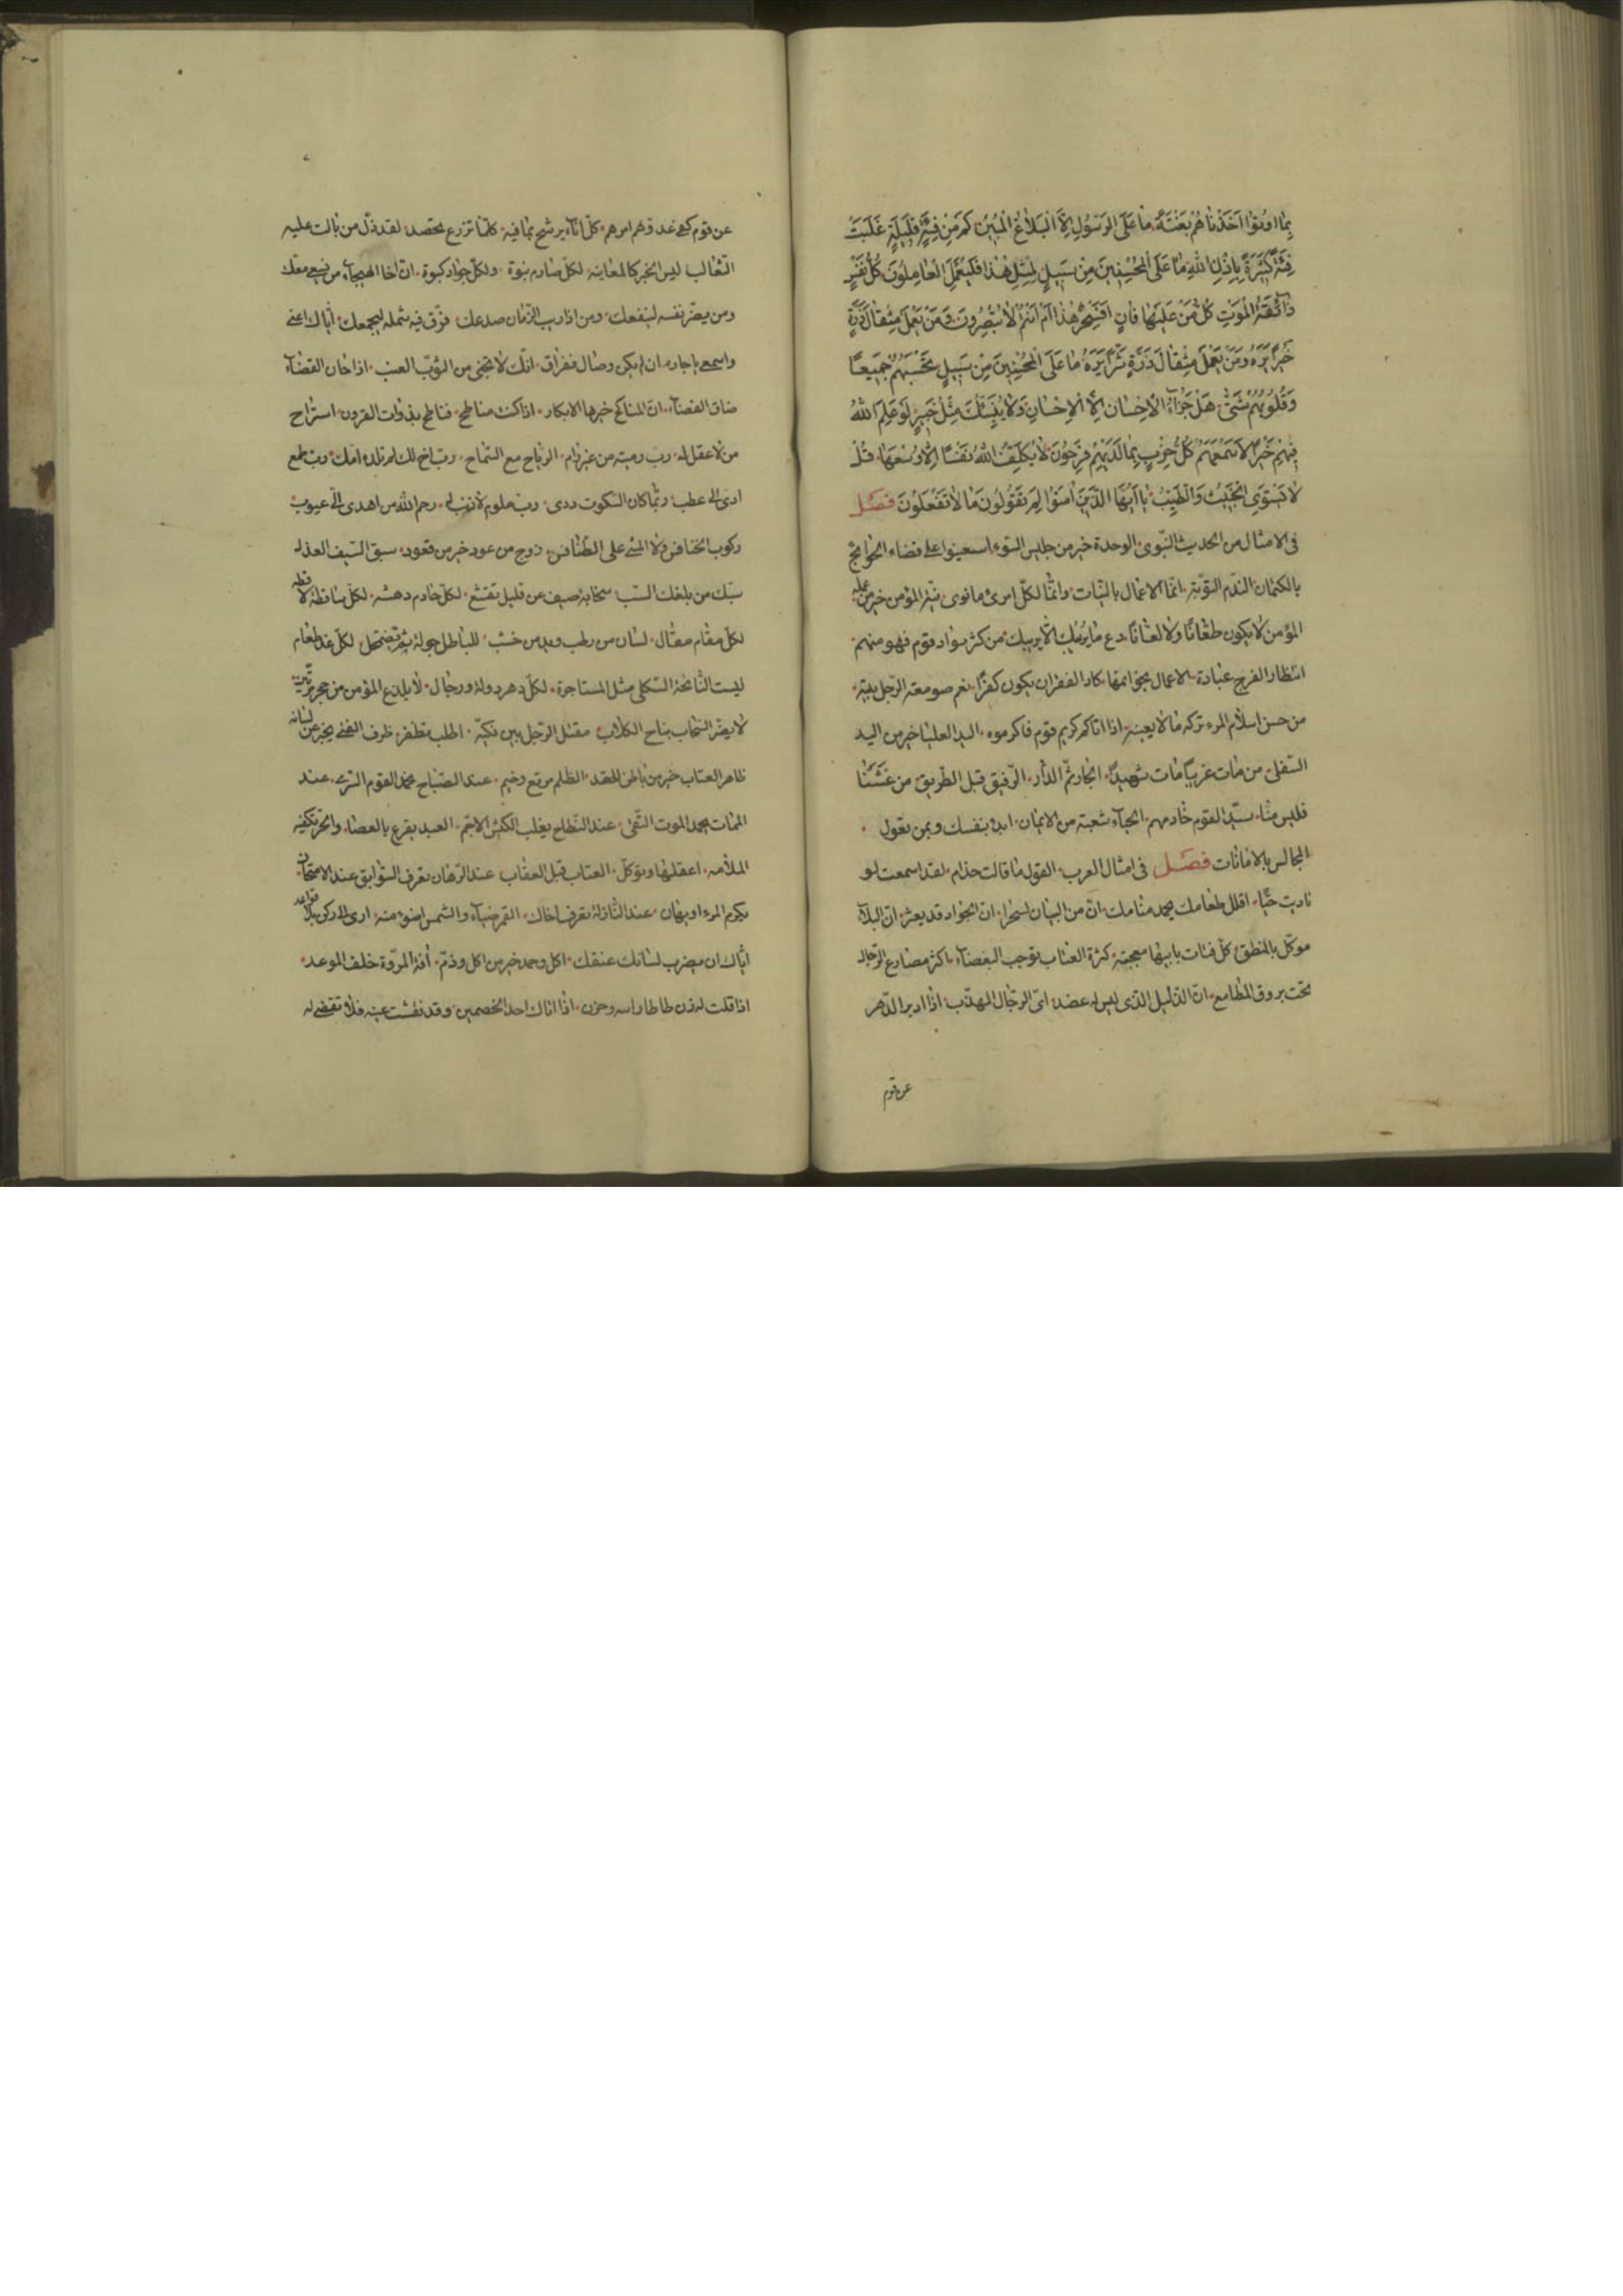 بِمَا اُوتُوا اَخَذْنٰاهُمْ بَغْتَةً مٰا عَلَى الرَسُولِ اِلَّا الْبَلاٰغُ الْمُبِينُ كَمْ مِنْ فِئَةٍ قَلِيلَةٍ غَلَبَتْ
فِئَةً كَثِيرَةً بِاِذْنِ اللهِ مٰا عَلَى الْمُحْسِنِينَ مِنْ سَبِيلٍ لِمِثْلِ هٰذَا فَلْيَعْمَلِ الْعٰامِلُونَ كُلُّ نَفْسٍ
ذٰائِقَةُ الْمَوْتِ كُلُّ مَنْ عَلَيْهٰا فٰانٍ اَفَسِحْرٌ هٰذٰا اَمْ اَنْتُمْ لاٰ تُبْصِرُونَ وَمَنْ يَعْمَلْ مِثْقٰالَ ذَرَّةٍ
خَيْرًا يَرَهُ وَمَنْ يَعْمَلْ مِثْقٰالَ ذَرَّةٍ شَرًّا يَرَهُ مٰا عَلَى الْمُحْسِنِينَ مِنْ سَبِيلٍ تَحْسَبُهُمْ جَمِيعًا
وَقُلُوبُهُمْ شَتّٰى هَلْ جَزٰآءُ الْاِحْسٰانِ اِلَّا الْاِحْسٰانِ وَلاٰ يُنَبِّئُكَ مِثْلُ خَبِيرٍ لَوْ عَلِمَ اللهُ
فِيهِمْ خَيْرًا لَاَسْمَعَهُمْ كُلُّ حِزْبٍ بِمٰا لَدَيْهِمْ فَرِحُونَ لاٰ يُكَلِّفُ اللهُ نَفْسًا اِلّٰا وُسْعَهٰا قُلْ
لاٰ يَسْتَوِى الْخَبِيثُ وَالطَّيِّبُ يٰا اَيُّهَا الَّذِينَ اٰمَنُوا لِمَ تَقُولُونَ مٰا لاٰ تَفْعَلُونَ فصَل
فى الامثال من الحديث النّبوى الوحدة خير من جليس السّوء استعينوا على قضاء الحوائج
بالكتمان الندم التوبة انّما الاعمال بالنّيات وانّما لكلّ امرئ ما نوى نيّة المؤمن خير من عمله
المؤمن لا يكون طعّانًا ولا لعّانًا دع ما يريبك الى ما لا يريبك من كثر سواد قوم فهو منهم
انتظار الفرج عبادة الاعمال بخواتمها كاد الفقر ان يكون كفرًا نعم صومعة الرّجل بيته
من حسن اسلام المرء تركه ما لا يعينه اذا اتاكم كريم قوم فاكرموه اليد العليا خير من اليد
السفلى من مات غريبًا مات شهيدًا الجار ثمّ الدّار الرّفيق قبل الطريق من غَشَّنَا
فليس منّا سيّد القوم خادمهم الحياء شعبة من الايمان ابدأ بنفسك وبمن تعول
المجالس بالامانات فصَل فى امثال العرب القول ما قالت حذام لقد اسمعت لو
ناديت حيًّا اقلل طعامك يحمد منامك انّ من البيان لسحرا انّ الجواد قد يعثر انّ البلآء
موكّل بالمنطق كلّ فتات بابيها معجبة كثرة العتاب توجب البغضآء اكثر مصارع الرّجال
تحت بروق المطامع انّ الذّليل الذى ليس له عضد اىّ الرّجال المهذّب اذا ادبر الدّهر
عن قوم
عن قوم كفى عدوّهم امرهم كلّ انآء يرشح بما فيه كلّما تزرع تحصد لقد ذلّ من بالت عليه
الثّعالب ليس الخبر كالمعاينة لكلّ صارم نبوة ولكلّ جواد كبوة انّ اخا الهيجآء من يسعى معك
ومن يضرّ نفسه لينفعك ومن اذا ريب الزّمان صدعك فرّق فيه شمله ليجمعك ايّاك اعنى
واسمعى يا جاره ان لم يكن وصال ففراق انّك لا تجنى من الشّوك العنب اذا حان القضآء
ضاق الفضآء انّ المناكح خيرها الابكار اذا كنت مناطح فناطح بذوات القرون استراح
من لا عقل له ربّ رمية من غير رام الرّباح مع السّماح ربّ اخ لك لم تلده امّك ربّ طمع
ادى الى عطب ربّما كان السّكوت ردى ربّ ملوم لا ذنب له رحم الله من اهدى الىّ عيوبى
ركوب الخنافس ولا المشى على الطّنافس زوج من عود خير من قعود سبق السّيف العذل
سبّك من بلغك السّب سحابة صيف عن قليل تقشع لكلّ قادم دهشه لكلّ ساقطة لاقطه
لكلّ مقام مقال لسان من رطب ويد من خشب للباطل جولة ثم يضمحل لكلّ غد طعام
ليست النّائحة الثكلى مثل المستاجرة لكلّ دهر دولة ورجال لا يلدغ المؤمن من جحر مرّتين
لا يضرّ السّحاب نباح الكلاب مقتل الرّجل بين فكيّه اطلب تظفر ظرف الفتى يخبر عن لسانه
ظاهر العتاب خير من باطن الحقد الظلم مرتع وخيم عند الصّباح يحمد القوم السّرى عند
الممات يحمد الموت التّقى عند النّطاح يغلب الكبش الاجمّ العبد يقرع بالعصا والحرّ تكفيه
الملامه اعقلها وتوكّل العتاب قبل العقاب عند الرّهان تعرف السّوابق عند الامتحان
يكرم المرء او يهان عند النّازلة تعرف اخاك القمر ضيآء والشّمس اضوء منه ارى الى ركن بلا قواعد
ايّاك ان يضرب لسانك عنقك اكل وحمد خير من اكل وذمّ آفة المروّة خلف الموعد
اذا قلت له زن طاطا راسه وحزن اذا اتاك احد الخصمين وقد فقئت عينه فلا تقضى له